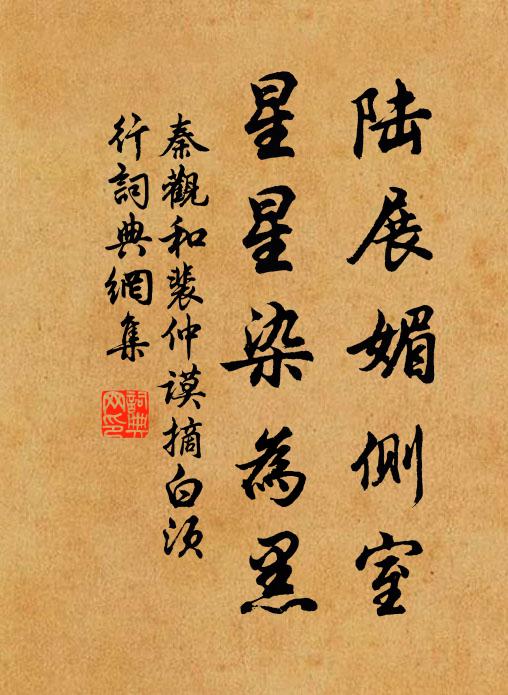 陆展媚側室
星星染為黑
秦觀和裴仲謨摘白須
行詞典網集
詞典
网印